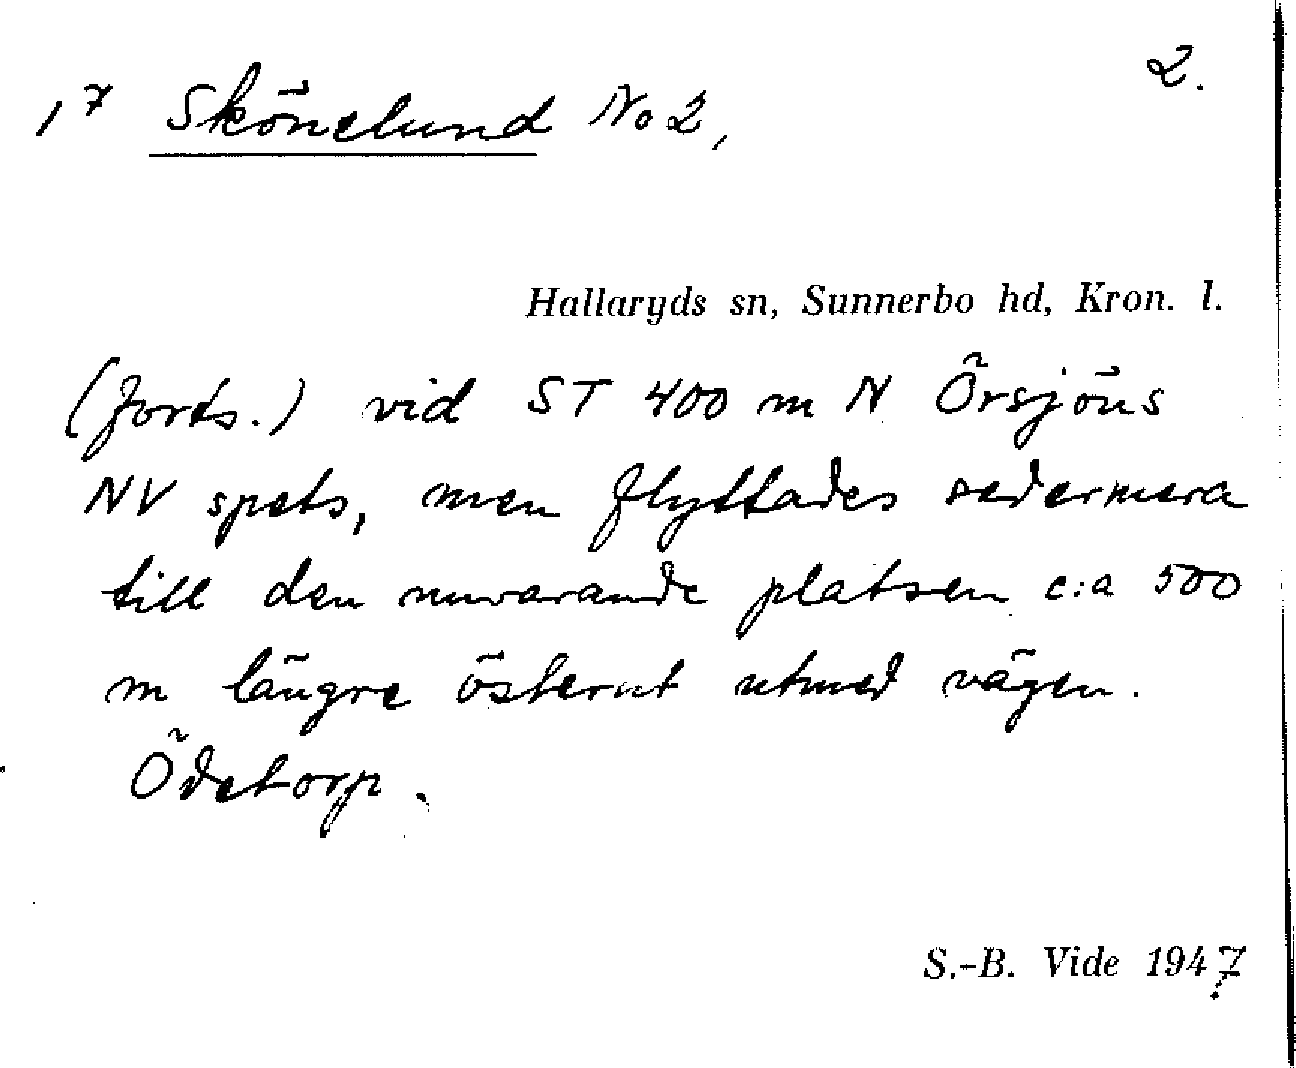 2.
1⁷ Skönelund No 2,
Hallaryds sn, Sunnerbo hd, Kron. l.
(forts.) vid ST 400 m N Örsjöns
NV spets, men flyttades sedermera
till den nuvarande platsen c:a 500
m längre österut utmed vägen.
Ödetorp.
S.-B. Vide 1947